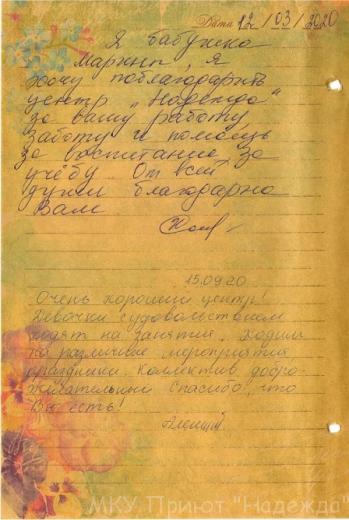 Дата 12/03/2020
Я бабушка
Марины, я
хочу поблагодарить
центр "Надежда"
за вашу работу,
заботу и помощь
за воспитание за
учёбу. От всей
души благодарна
Вам
15.09.20
Очень хороший центр!
Девочки с удовольствием
ходят на занятия. Ходим
на различные мероприятия
праздники. Коллектив добро-
желательный спасибо, что
Вы есть!
МКУ Приют "Надежда"